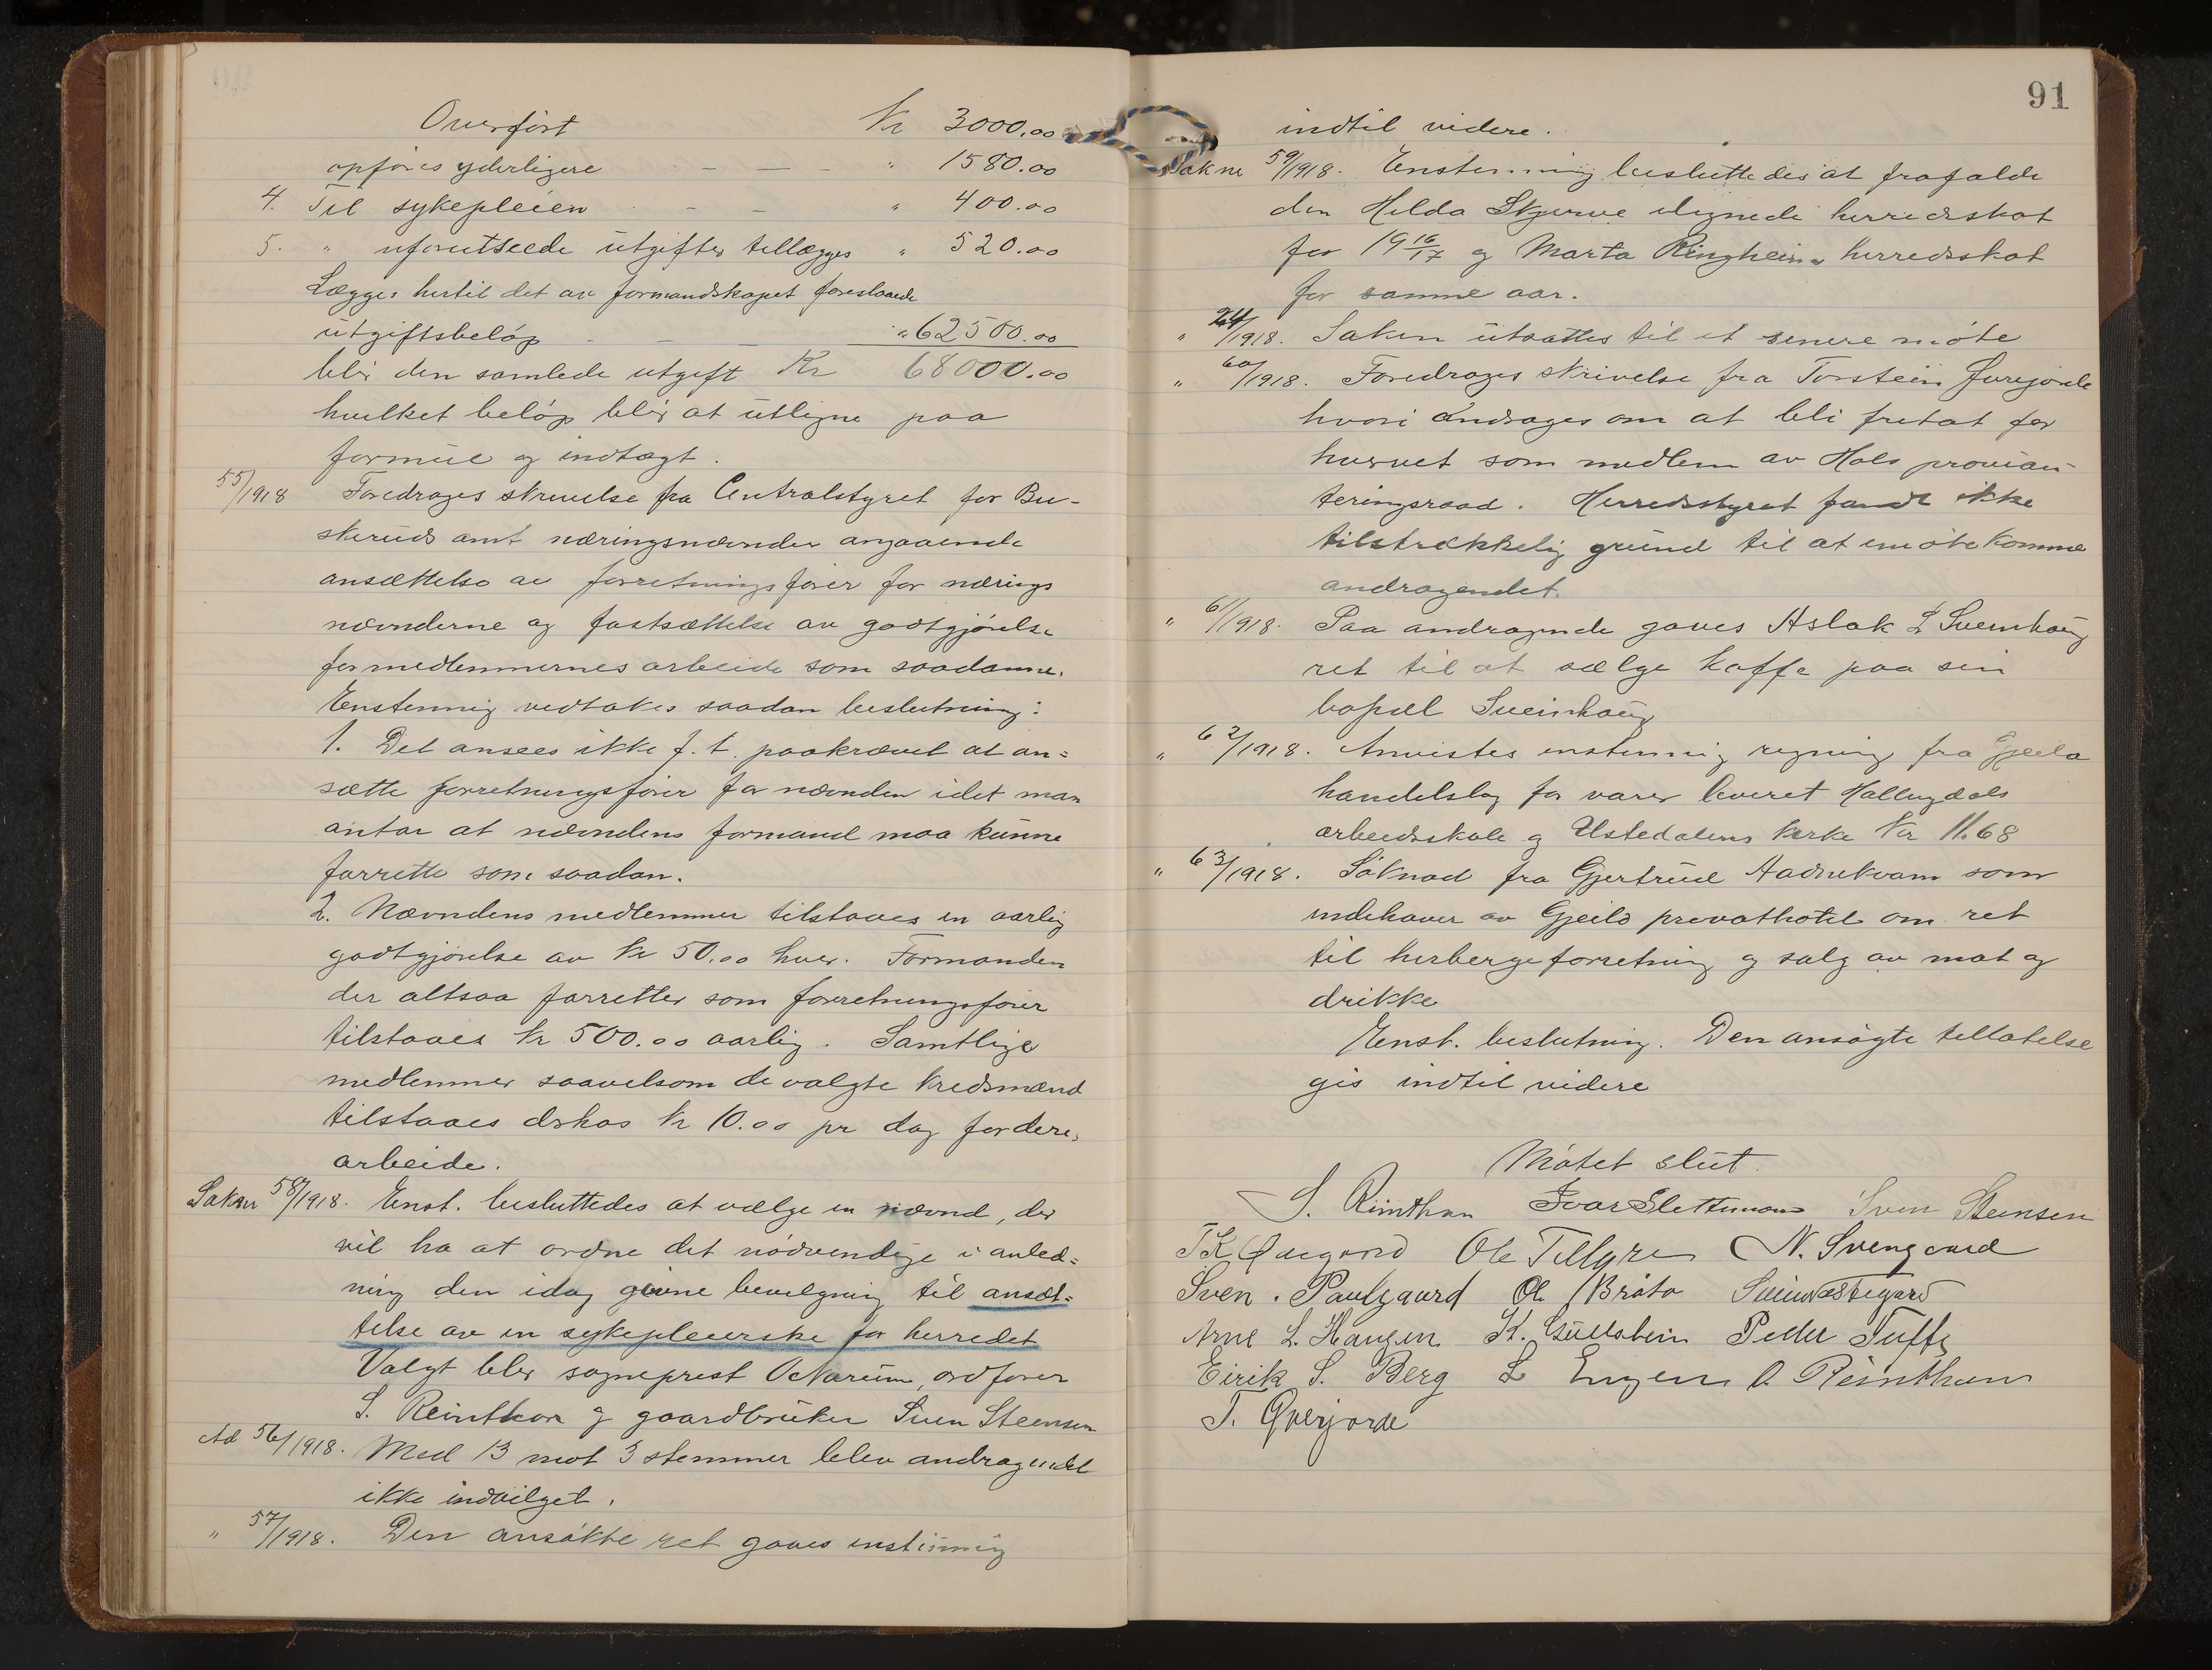 Overført Kr 3000.00
opføres yderligere - - - " 1580.00
4. Til sykepleien - - " 400.00
5. " uforutseede utgifter tillægges " 520.00
Lægges hertil det av formandskapet foreslaaede
utgiftsbeløp - - - " 62500.00
blir den samlede utgift Kr 68000.00
hvilket beløp blir at utligne paa
formue og indtægt.
55/1918 Foredrages skrivelse fra Centralstyret for Bu-
skeruds amt næringsnævnder angaaende
ansættelse av forretningsfører for nærings
nævnderne og fastsættelse av godtgjørelse
for medlemmernes arbeide som saadanne.
Enstemmig vedtakes saadan beslutning:
1. Det ansees ikke f. t. paakrævet at an=
sætte forretningsfører for nævnden idet man
antar at nævndens formand maa kunne
forrette som saadan.
2. Nævndens medlemmer tilstaaes en aarlig
godtgjørelse av Kr 50.00 hver. Formanden
der altsaa forretter som forretningsfører
tilstaaes Kr 500.00 aarlig. Samtlige
medlemmer saavelsom de valgte kredsmænd
tilstaaes derhos Kr 10.00 pr dag for deres
arbeide.
Saknr 58/1918. Enst. besluttedes at vælge en nævnd, der
vil ha at ordne det nødvendige i anled=
ning den idag givne bevilgning til ansæt=
telse av en sykepleierske for herredet
Valgt blev sogneprest ordfører
S. Reinthon og gaardbruker Sven Steensen
Ad 56/1918. Med 13 mot 3 stemmer blev andragendet
ikke indvilget.
" 57/1918. Den ansøkte ret gaves enstemmig
91
indtil videre.
Saknr 59/1918. Enstemmig besluttedes at frafalde
den Hilda Skjerve ilignede herredsskat
for 19 16/17 og Marta Ringheims herredsskat
for samme aar.
" /1918. Saken utsattes til et senere møte
" 60/1918. Foredrages skrivelse fra Torstein
hvori andrages om at bli fritat for
hvervet som medlem av Hols provian-
teringsraad. Herredsstyret fandt ikke
tilstrækkelig grund til at imøtekomme
andragendet.
" 61/1918. Paa andragende gaves Aslak L Sveinhaug
ret til at sælge kaffe paa sin
bopæl Sveinhaug
" 62/1918. Anvistes enstemmig regning fra Gjeilo
handelslag for varer leveret Hallingdals
arbeidsskole og Ustedalens kirke Kr 11.68
" 63/1918. Søknad fra Gjertrud Aadnekvam som
indehaver av Gjeilo privathotel om ret
til herbergeforretning og salg av mat og
drikke
Enst. beslutning. Den ansøgte tillatelse
gis indtil videre
Møtet slut.
S. Reinthon Ivar Slettemoen Sven Steensen
T K Øvegard Ole Tillgre N. Svengaard
Sven. Paulgaard Ol Bråto Svein Vestegard
Arne L. Haugen K. Gullstein Peder Tufte
Eirik S. Berg L Engen O. Reinthon
T. Qverjorde